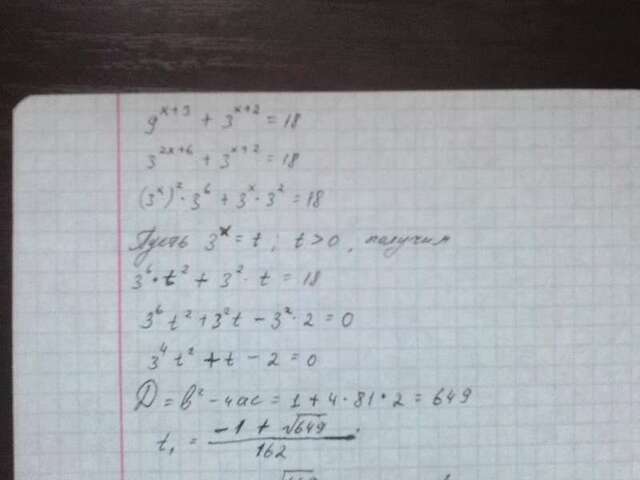 9^{x+3} + 3^{x+2} = 18
3^{2x+6} + 3^{x+2} = 18
(3^x)^2 · 3^6 + 3^x · 3^2 = 18
Пусть 3^x = t; t > 0, получим
3^6 · t^2 + 3^2 · t = 18
3^6 t^2 + 3^2 t − 3^2 · 2 = 0
3^4 t^2 + t − 2 = 0
D = b^2 − 4ac = 1 + 4 · 81 · 2 = 649
t_1 = \frac{−1 + \sqrt{649}}{162}